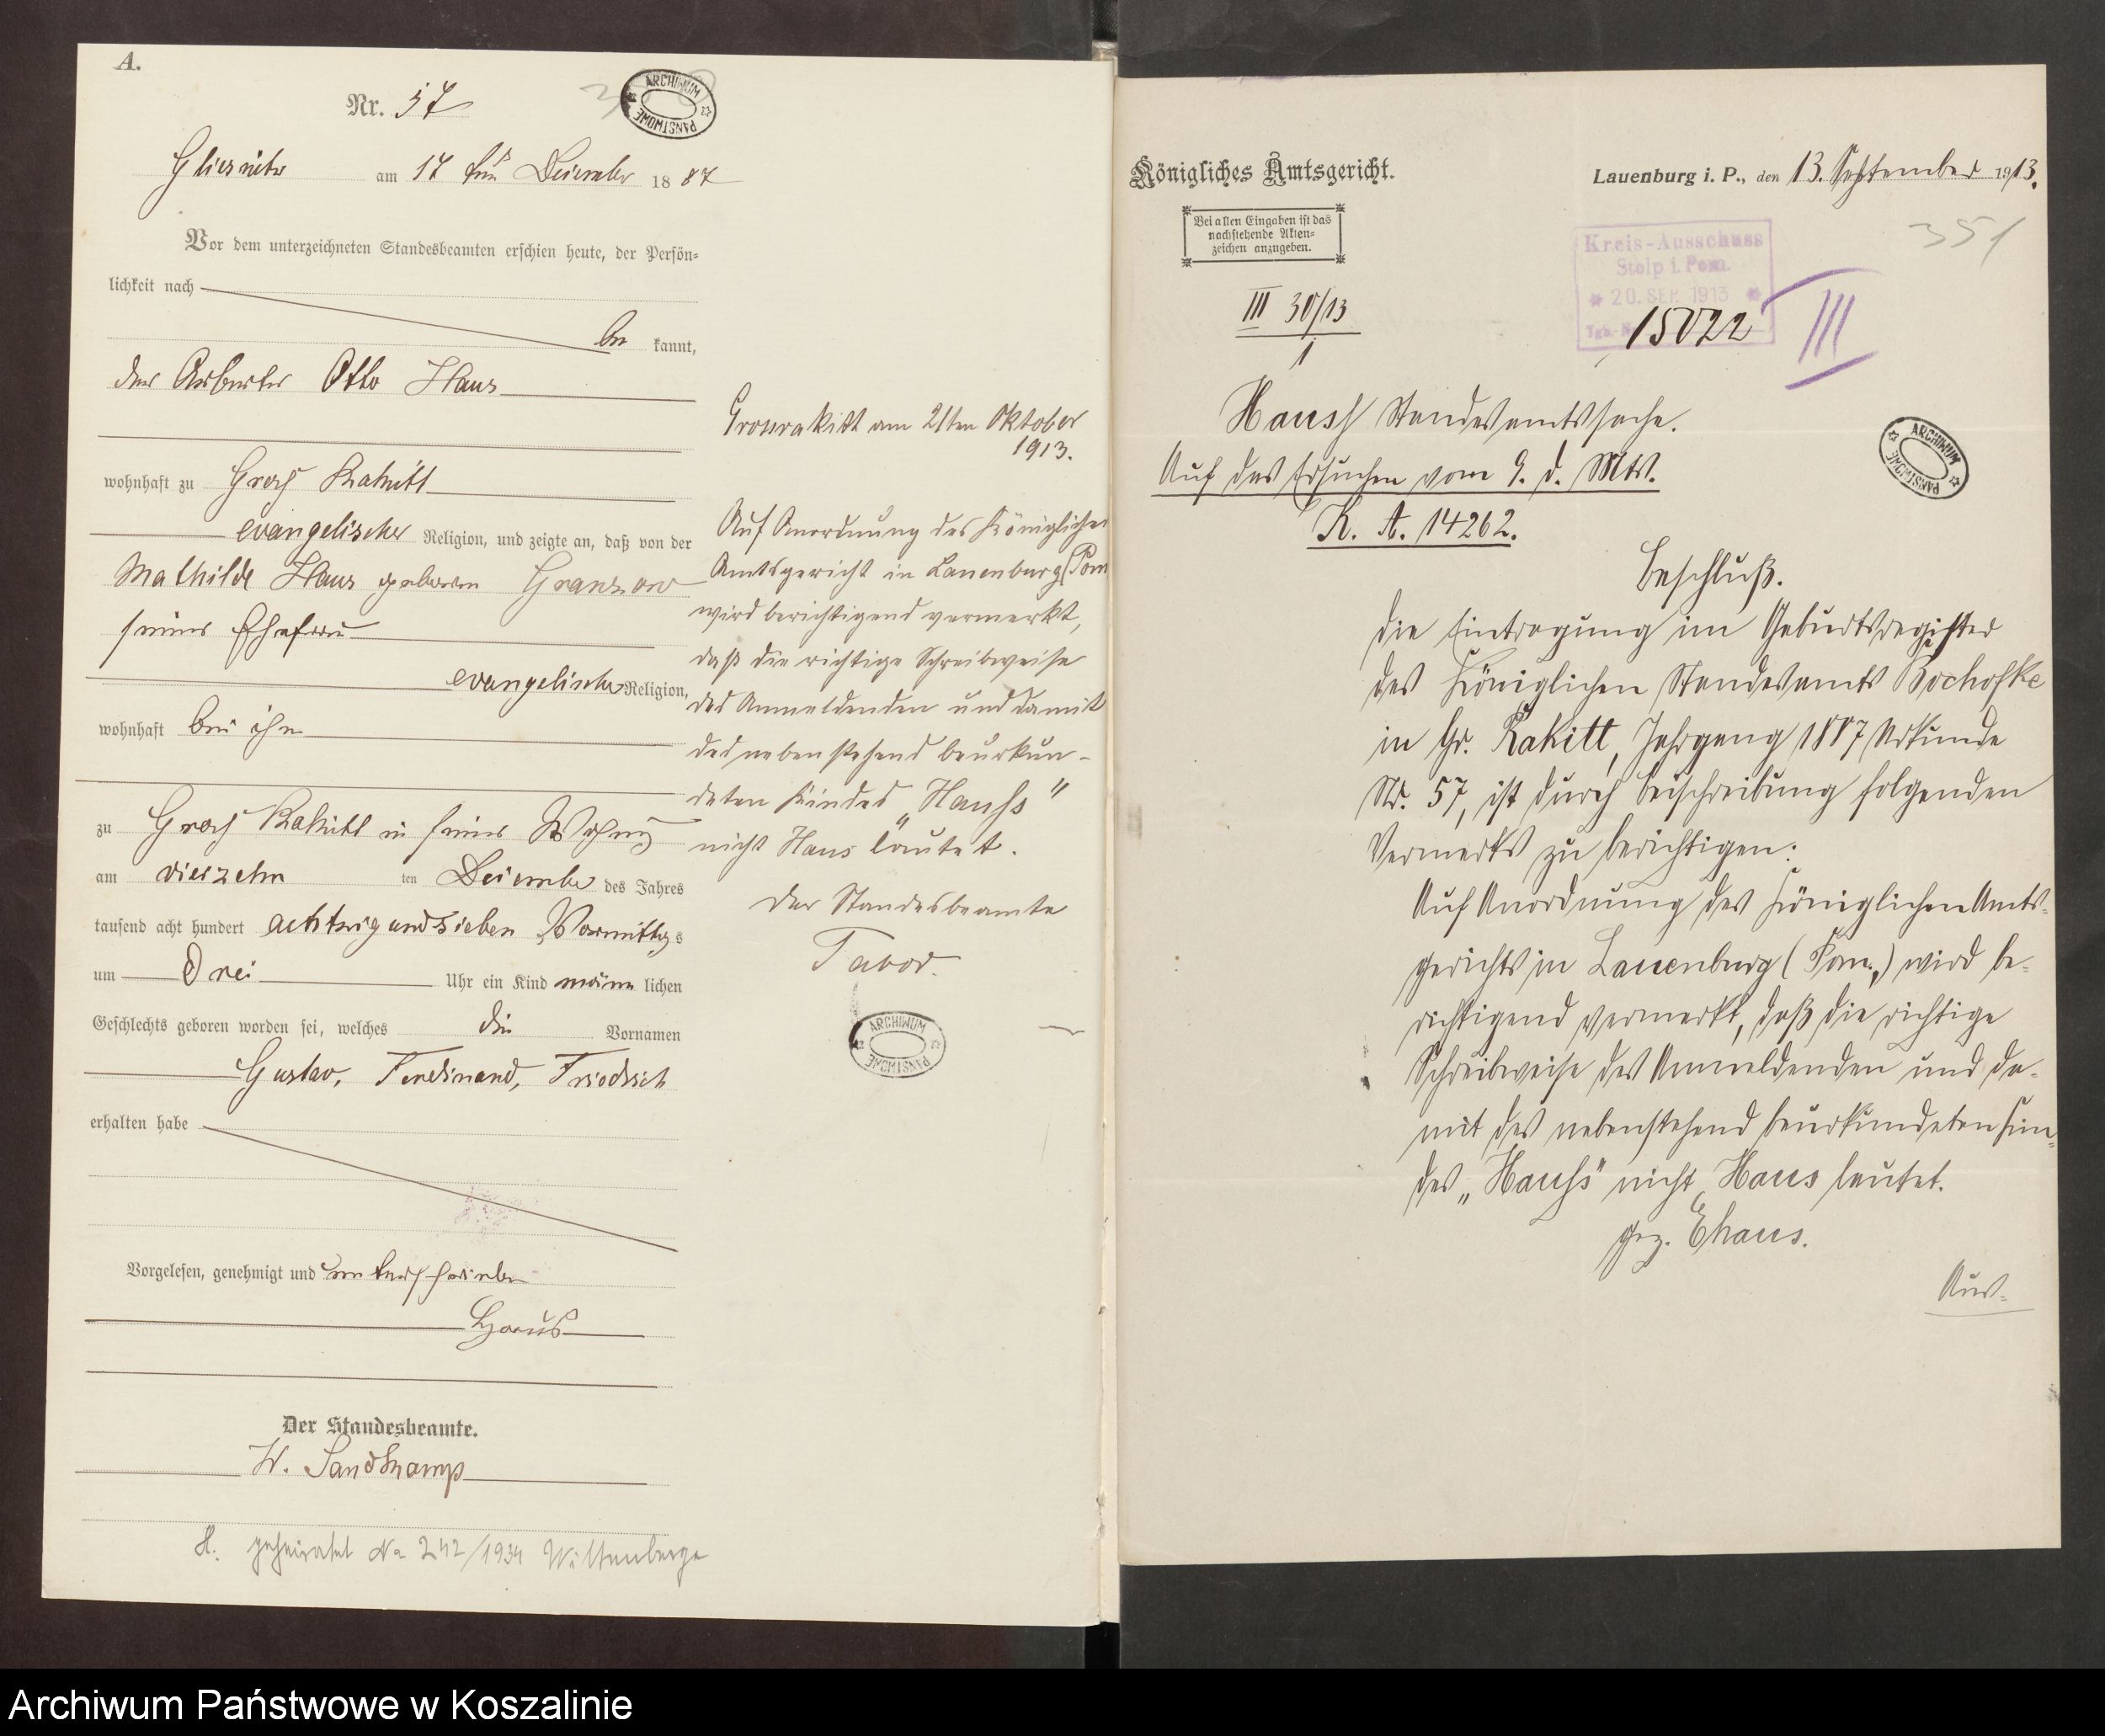 A.
Nr. 57
ARCHIWUM PAŃSTWOWE
Gliesnitz am 17 ten Dezember 1887
Vor dem unterzeichneten Standesbeamten erschien heute, der Persön-
lichkeit nach
be kannt,
der Arbeiter Otto Haus
wohnhaft zu Groß Rakitt
evangelischer Religion, und zeigte an, daß von der
Mathilde Haus geborenen Granzow
seiner Ehefrau
evangelischer Religion,
wohnhaft bei ihm
zu Groß Rakitt in seiner Wohnung
am vierzehn ten Dezember des Jahres
tausend acht hundert achtzig und sieben Vormittags
um Drei Uhr ein Kind männlichen
Geschlechts geboren worden sei, welches die Vornamen
Gustav, Ferdinand, Friedrich
erhalten habe
Vorgelesen, genehmigt und unterschrieben
Haus
Der Standesbeamte.
W. Sandkamp
H. geheiratet No 242/1934 Wittenberge
Grossrakitt am 21ten Oktober
1913.
Auf Anordnung des Königlichen
Amtsgericht in Lauenburg (Pom
wird berichtigend vermerkt,
daß die richtige Schreibweise
des Anmeldenden und damit
des nebenstehend beurkun-
deten Kindes „Hauhs"
nicht Haus lautet.
Der Standesbeamte
Tabor.
ARCHIWUM PAŃSTWOWE
Königliches Amtsgericht.
Lauenburg i. P., den 13. September 1913.
Bei allen Eingaben ist das
nachstehende Akten-
zeichen anzugeben.
351
Kreis-Ausschuss
Stolp i. Pom.
20. SEP. 1913
15022
III
III 30/13
1
ARCHIWUM PAŃSTWOWE
Hauhs Standesamtssache.
Auf das Ersuchen vom 9. d. Mts.
K. A. 14262.
Beschluß.
Die Eintragung im Geburtsregister
des Königlichen Standesamts Bochofke
in Gr. Rakitt, Jahrgang 1887 Urkunde
Nr. 57, ist durch Beischreibung folgenden
Vermerks zu berichtigen:
Auf Anordnung des Königlichen Amts-
gerichts in Lauenburg (Pom.) wird be-
richtigend vermerkt, daß die richtige
Schreibweise des Anmeldenden und da-
mit des nebenstehend beurkundeten Kin-
des „Hauhs" nicht Haus lautet.
gez. Ehaus.
Aus-
Archiwum Państwowe w Koszalinie